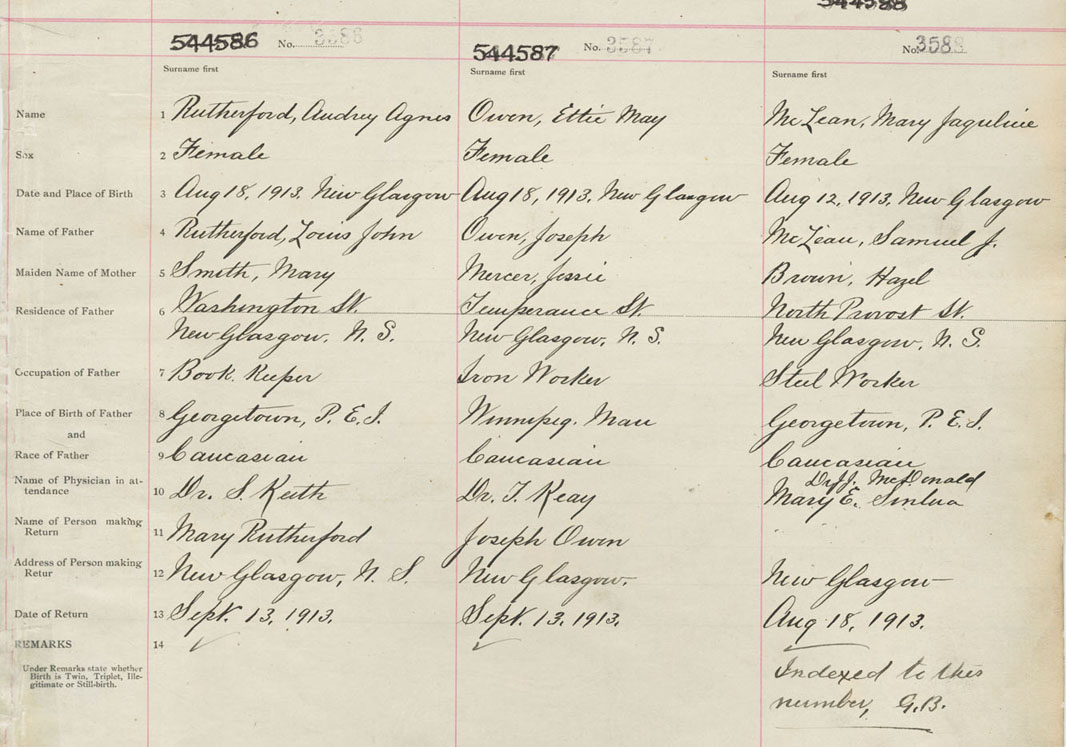 544588
544586 No. 3586 544587 No. 3587 No. 3588
Surname first Surname first Surname first
Name 1 Rutherford, Audrey Agnes Owen, Ettie May McLean, Mary Jaqueline
Sex 2 Female Female Female
Date and Place of Birth 3 Aug 18, 1913. New Glasgow Aug 18, 1913, New Glasgow Aug 12, 1913, New Glasgow
Name of Father 4 Rutherford, Louis John Owen, Joseph McLean, Samuel J.
Maiden Name of Mother 5 Smith, Mary Mercer, Jessie Brown, Hazel
Residence of Father 6 Washington St. Temperance St. North Provost St.
New Glasgow, N. S. New Glasgow, N. S. New Glasgow, N. S.
Occupation of Father 7 Book Keeper Iron Worker Steel Worker
Place of Birth of Father 8 Georgetown, P. E. I. Winnipeg. Man Georgetown, P. E. I.
and
Race of Father 9 Caucasian Caucasian Caucasian
Dr J.J. McDonald
Name of Physician in at-
tendence 10 Dr. S. Keith Dr. T. Keay Mary E.
Name of Person making
Return 11 Mary Rutherford Joseph Owen
Address of Person making
Retur 12 New Glasgow, N. S. New Glasgow. New Glasgow
Date of Return 13 Sept. 13, 1913. Sept. 13, 1913. Aug 18, 1913.
REMARKS 14
Under Remarks state whether
Birth is Twin, Triplet, Ille-
gitimate or Still-birth.
Indexed to this
number, G.B.